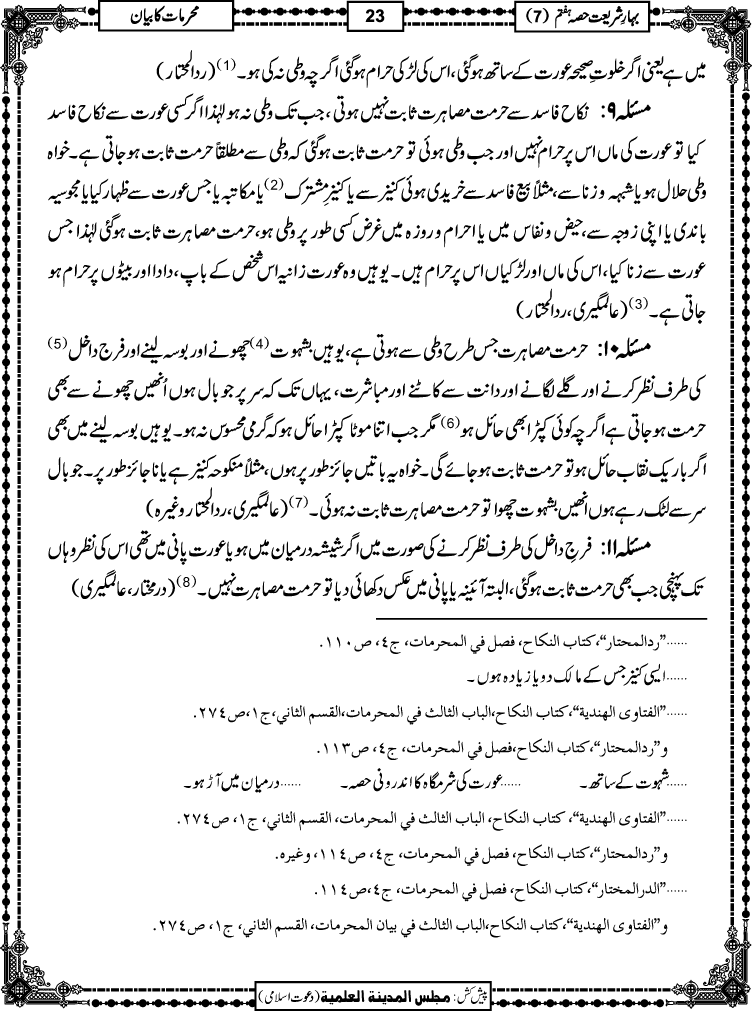 بہارِ شریعت حصہ ہفتم (7)
23
محرمات کا بیان
میں ہے یعنی اگر خلوتِ صحیحہ عورت کے ساتھ ہوگئی، اس کی لڑکی حرام ہوگئی اگرچہ وطی نہ کی ہو۔(1) (ردالمحتار)
مسئلہ ۹: نکاح فاسد سے حرمت مصاہرت ثابت نہیں ہوتی، جب تک وطی نہ ہو لہٰذا اگر کسی عورت سے نکاح فاسد
کیا تو عورت کی ماں اس پر حرام نہیں اور جب وطی ہوئی تو حرمت ثابت ہوگئی کہ وطی سے مطلقاً حرمت ثابت ہو جاتی ہے۔ خواہ
وطی حلال ہو یا شبہہ و زنا سے، مثلاً بیع فاسد سے خریدی ہوئی کنیز سے یا کنیزِ مشترک(2) یا مکاتبہ یا جس عورت سے ظہار کیا یا مجوسیہ
باندی یا اپنی زوجہ سے، حیض و نفاس میں یا احرام و روزہ میں غرض کسی طور پر وطی ہو، حرمت مصاہرت ثابت ہوگئی لہٰذا جس
عورت سے زنا کیا، اس کی ماں اور لڑکیاں اس پر حرام ہیں۔ یوہیں وہ عورت زانیہ اس شخص کے باپ، دادا اور بیٹوں پر حرام ہو
جاتی ہے۔(3) (عالمگیری، ردالمحتار)
مسئلہ ۱۰: حرمت مصاہرت جس طرح وطی سے ہوتی ہے، یوہیں بشہوت(4) چھونے اور بوسہ لینے اور فرج داخل(5)
کی طرف نظر کرنے اور گلے لگانے اور دانت سے کاٹنے اور مباشرت، یہاں تک کہ سر پر جو بال ہوں اُنھیں چھونے سے بھی
حرمت ہو جاتی ہے اگرچہ کوئی کپڑا بھی حائل ہو(6) مگر جب اتنا موٹا کپڑا حائل ہو کہ گرمی محسوس نہ ہو۔ یوہیں بوسہ لینے میں بھی
اگر باریک نقاب حائل ہو تو حرمت ثابت ہو جائے گی۔ خواہ یہ باتیں جائز طور پر ہوں، مثلاً منکوحہ کنیز ہے یا ناجائز طور پر۔ جو بال
سر سے لٹک رہے ہوں انھیں بشہوت چھوا تو حرمت مصاہرت ثابت نہ ہوئی۔(7) (عالمگیری، ردالمحتار وغیرہ)
مسئلہ ۱۱: فرج داخل کی طرف نظر کرنے کی صورت میں اگر شیشہ درمیان میں ہو یا عورت پانی میں تھی اس کی نظر وہاں
تک پہنچی جب بھی حرمت ثابت ہوگئی، البتہ آئینہ یا پانی میں عکس دکھائی دیا تو حرمت مصاہرت نہیں۔(8) (درمختار، عالمگیری)
......”ردالمحتار“، کتاب النکاح، فصل في المحرمات، ج٤، ص١١٠.
......ایسی کنیز جس کے مالک دو یا زیادہ ہوں۔
......”الفتاوی الهندیة“، کتاب النکاح، الباب الثالث في المحرمات، القسم الثاني، ج١، ص٢٧٤.
و”ردالمحتار“، کتاب النکاح، فصل في المحرمات، ج٤، ص١١٣.
......شہوت کے ساتھ۔ ......عورت کی شرمگاہ کا اندرونی حصہ۔ ......درمیان میں آڑ ہو۔
......”الفتاوی الهندیة“، کتاب النکاح، الباب الثالث في المحرمات، القسم الثاني، ج١، ص٢٧٤.
و”ردالمحتار“، کتاب النکاح، فصل في المحرمات، ج٤، ص١١٤، وغیره.
......”الدرالمختار“، کتاب النکاح، فصل في المحرمات، ج٤، ص١١٤.
و”الفتاوی الهندیة“، کتاب النکاح، الباب الثالث في بیان المحرمات، القسم الثاني، ج١، ص٢٧٤.
پیش کش: مجلس المدینة العلمیة (دعوت اسلامی)